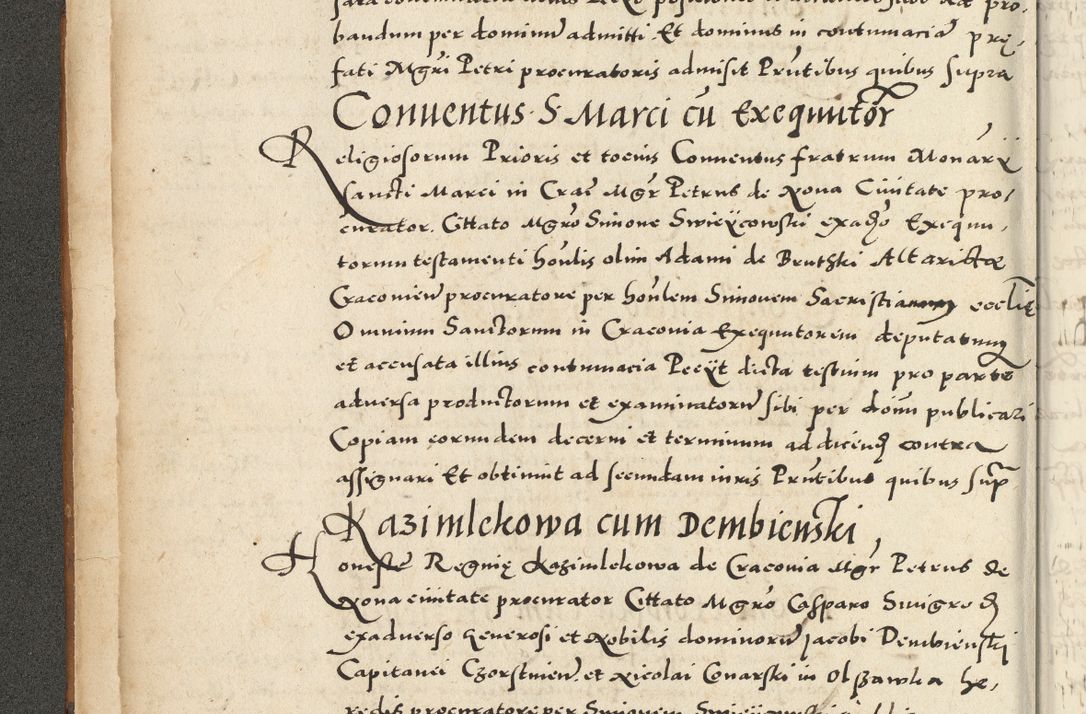 bandum per dominum admitti. Et dominus in contumaciam prę-
fati Mgri Petri procuratoris admisit Prntibus quibus supra
Conuentus S Marci cu Exequutor
Religiosorum Prioris et tocius Conuentus fratrum Monarx
Sancti Marci in Crac Mgr Petrus de Noua Ciuitate pro-
curator. Cittato Mgro Simone Swieÿcowski exadso Exequu-
torum testamenti honlis olim Adami de Brutzki Altaristæ
Cracouien procuratore per honlem Simonem Sacristi ecclię
Omnium Sanctorum in Cracouia Exequutorem deputatum
et accusata illius contumacia Pecÿt dicta testium pro parte
aduersa productorum et examinatoru sibi per donu publicari
Copiam eorundem decerni et terminum ad dicend contra
assignari Et obtinuit ad secundam iuris Prntibus quibus sup
Kazimlekowa cum Dembienski
Honeste Regnię Kazimlekowa de Cracouia Mgr Petrus de
Noua ciuitate procurator Cittato Mgro Casparo Swigro d
exaduerso Generosi et Nobilis dominoru Jacobi Dembienski
Capitanei Czorstinen et Nicolai Conarski in Olszawka he-
redis procuratore per Simonem